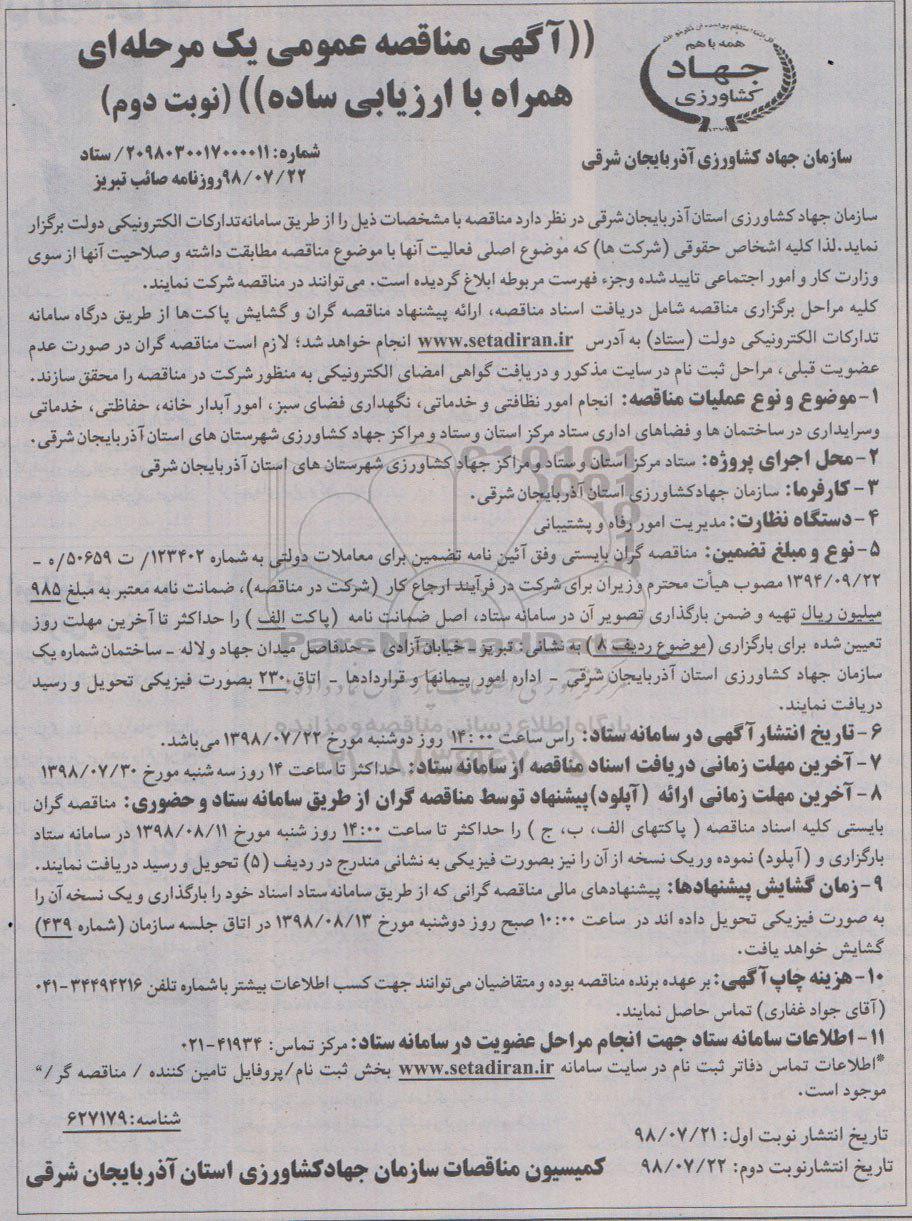 همه با هم
جهاد
کشاورزی
((آگهی مناقصه عمومی یک مرحله‌ای
همراه با ارزیابی ساده)) (نوبت دوم)
سازمان جهاد کشاورزی آذربایجان شرقی
شماره: ۲۰۹۸۰۳۰۰۱۷۰۰۰۰۱۱/ ستاد
۹۸/۰۷/۲۲روزنامه صائب تبریز
سازمان جهاد کشاورزی استان آذربایجان شرقی در نظر دارد مناقصه با مشخصات ذیل را از طریق سامانه تدارکات الکترونیکی دولت برگزار
نماید.لذا کلیه اشخاص حقوقی (شرکت ها) که موضوع اصلی فعالیت آنها با موضوع مناقصه مطابقت داشته و صلاحیت آنها از سوی
وزارت کار و امور اجتماعی تایید شده وجزء فهرست مربوطه ابلاغ گردیده است. می‌توانند در مناقصه شرکت نمایند.
کلیه مراحل برگزاری مناقصه شامل دریافت اسناد مناقصه، ارائه پیشنهاد مناقصه گران و گشایش پاکت‌ها از طریق درگاه سامانه
تدارکات الکترونیکی دولت (ستاد) به آدرس www.setadiran.ir انجام خواهد شد؛ لازم است مناقصه گران در صورت عدم
عضویت قبلی، مراحل ثبت نام در سایت مذکور و دریافت گواهی امضای الکترونیکی به منظور شرکت در مناقصه را محقق سازند.
۱-موضوع و نوع عملیات مناقصه: انجام امور نظافتی و خدماتی، نگهداری فضای سبز، امور آبدار خانه، حفاظتی، خدماتی
وسرایداری در ساختمان ها و فضاهای اداری ستاد مرکز استان و ستاد و مراکز جهاد کشاورزی شهرستان های استان آذربایجان شرقی.
۲-محل اجرای پروژه: ستاد مرکز استان و ستاد و مراکز جهاد کشاورزی شهرستان های استان آذربایجان شرقی
۳-کارفرما: سازمان جهادکشاورزی استان آذربایجان شرقی.
۴-دستگاه نظارت: مدیریت امور رفاه و پشتیبانی
۵-نوع و مبلغ تضمین: مناقصه گران بایستی وفق آئین نامه تضمین برای معاملات دولتی به شماره ۱۲۳۴۰۲/ ت ۵۰۶۵۹/ه -
۱۳۹۴/۰۹/۲۲ مصوب هیأت محترم وزیران برای شرکت در فرآیند ارجاع کار (شرکت در مناقصه)، ضمانت نامه معتبر به مبلغ ۹۸۵
میلیون ریال تهیه و ضمن بارگذاری تصویر آن در سامانه ستاد، اصل ضمانت نامه (پاکت الف) را حداکثر تا آخرین مهلت روز
تعیین شده برای بارگزاری (موضوع ردیف ۸) به نشانی: تبریز - خیابان آزادی - حدفاصل میدان جهاد ولاله - ساختمان شماره یک
سازمان جهاد کشاورزی استان آذربایجان شرقی - اداره امور پیمانها و قراردادها - اتاق ۲۳۰ بصورت فیزیکی تحویل و رسید
دریافت نمایند.
۶-تاریخ انتشار آگهی در سامانه ستاد: راس ساعت ۱۴:۰۰ روز دوشنبه مورخ ۱۳۹۸/۰۷/۲۲ می‌باشد.
۷-آخرین مهلت زمانی دریافت اسناد مناقصه از سامانه ستاد: حداکثر تا ساعت ۱۴ روز سه شنبه مورخ ۱۳۹۸/۰۷/۳۰
۸-آخرین مهلت زمانی ارائه (آپلود)پیشنهاد توسط مناقصه گران از طریق سامانه ستاد و حضوری: مناقصه گران
بایستی کلیه اسناد مناقصه ( پاکتهای الف، ب، ج ) را حداکثر تا ساعت ۱۴:۰۰ روز شنبه مورخ ۱۳۹۸/۰۸/۱۱ در سامانه ستاد
بارگزاری و (آپلود) نموده و یک نسخه از آن را نیز بصورت فیزیکی به نشانی مندرج در ردیف (۵) تحویل و رسید دریافت نمایند.
۹-زمان گشایش پیشنهادها: پیشنهادهای مالی مناقصه گرانی که از طریق سامانه ستاد اسناد خود را بارگذاری و یک نسخه آن را
به صورت فیزیکی تحویل داده اند در ساعت ۱۰:۰۰ صبح روز دوشنبه مورخ ۱۳۹۸/۰۸/۱۳ در اتاق جلسه سازمان (شماره ۴۳۹)
گشایش خواهد یافت.
۱۰-هزینه چاپ آگهی: بر عهده برنده مناقصه بوده و متقاضیان می‌توانند جهت کسب اطلاعات بیشتر با شماره تلفن ۳۴۴۹۴۲۱۶-۰۴۱
(آقای جواد غفاری) تماس حاصل نمایند.
۱۱-اطلاعات سامانه ستاد جهت انجام مراحل عضویت در سامانه ستاد: مرکز تماس: ۴۱۹۳۴-۰۲۱
*اطلاعات تماس دفاتر ثبت نام در سایت سامانه www.setadiran.ir بخش ثبت نام/پروفایل تامین کننده / مناقصه گر/"
موجود است.
شناسه: ۶۲۷۱۷۹
تاریخ انتشار نوبت اول: ۹۸/۰۷/۲۱
تاریخ انتشارنوبت دوم: ۹۸/۰۷/۲۲
کمیسیون مناقصات سازمان جهادکشاورزی استان آذربایجان شرقی
ParsNamadData
پایگاه اطلاع رسانی مناقصه و مزایده